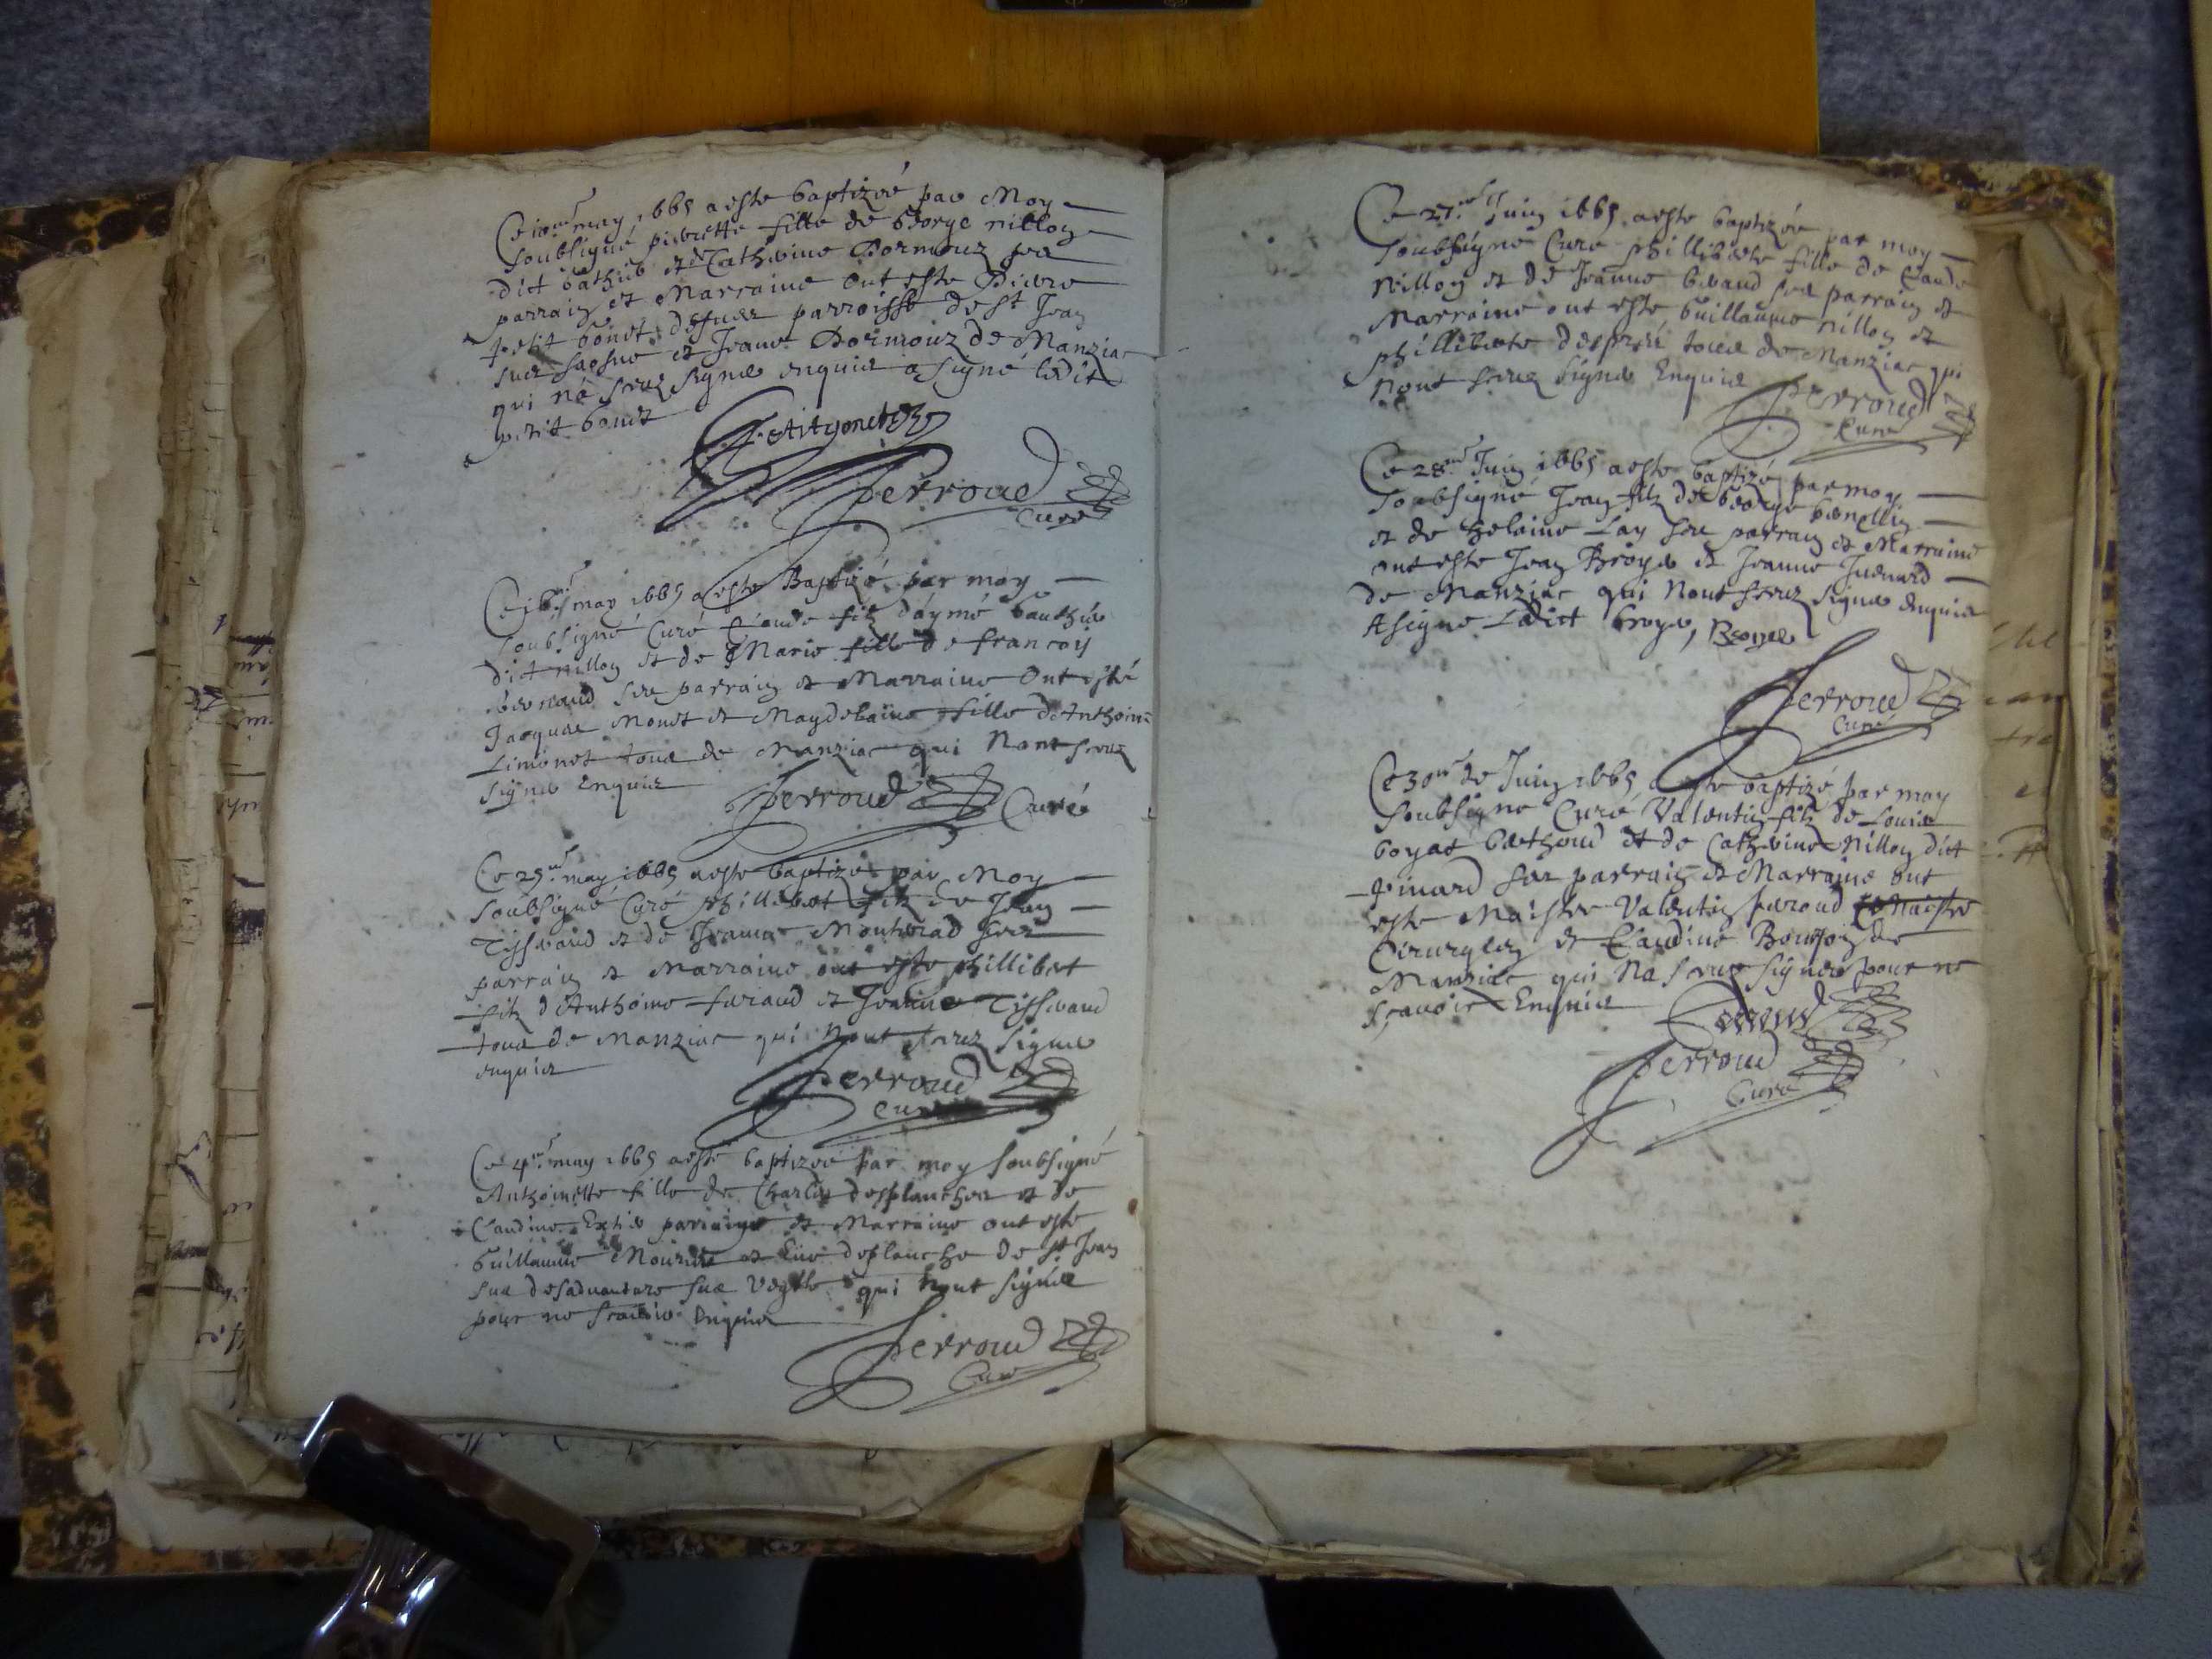 Ce 10me may 1665 a este baptizée par Moy
soubsigné pierrette fille de George nillon
dict et de Catherine Dormouz ses
parrain et Marraine ont este Pierre
petit Gonet parroisse de st Jean
sur saosne et Jeane Dormouz de Manziac
qui na sceuz signer enquis a signé ledit
petit Gonet
Petitgonet
Perroud
Curé
Ce may 1665 a este Baptizé par moy
soubsigné Curé Claude filz d'aymé Gauthier
dict nillon et de Marie fille de francoys
ses parrain et Marraine Ont esté
Jacques Monet et Magdelaine fille d'Anthoine
Limonet tous de Manziac qui Nont sceuz
signer Enquis
Perroud Curé
Ce 25me may 1665 a este baptizé par Moy
soubsigné Curé phillibert filz de Jean
Tisserand et de Jeanne Monterrad ses
parrain et Marraine ont este phillibert
filz d'Anthoine feraud et Jeanne Tisserand
tous de Manziac qui Nont sceuz signer
enquis
Perroud
Curé
Ce 4me may 1665 a esté baptizée par moy soubsigné
Anthoinette fille de Charles desplanches et de
Claudine parrain et Marraine ont este
Guillaume et desplanche de st Jean
sus desaduanture sus Veyle qui Nont signés
pour ne scauoir Enquis
Perroud
Curé
Ce 27me Juin 1665 a este baptizée par moy
soubsigné Curé philliberte fille de Claude
Nillon et de Jeanne ses parrain et
Marraine ont este Guillaume nillon et
philliberte tous de Manziac qui
Nont sceuz signer Enquis
Perroud
Curé
Ce 28me Juin 1665 a este baptizé par moy
soubsigné Jean filz de George
et de helaine Lay ses parrain et Marraine
ont este Jean Broye et Jeanne Juenard
de Manziac qui Nont sceuz signer enquis
A signe Ledict broye, Broye
Perroud
Curé
Ce 30me de Juin 1665 a este baptizé par moy
soubsigne Curé Valentin filz de Louis
boyat et de Catherine Nillon dict
ses parrain et Marraine ont
este Maistre Valentin feroud
Cirurgien et Claudine Bourson de
Manziac qui Na sceuz signer pour ne
scauoir Enquis
feroud
Perroud
Curé